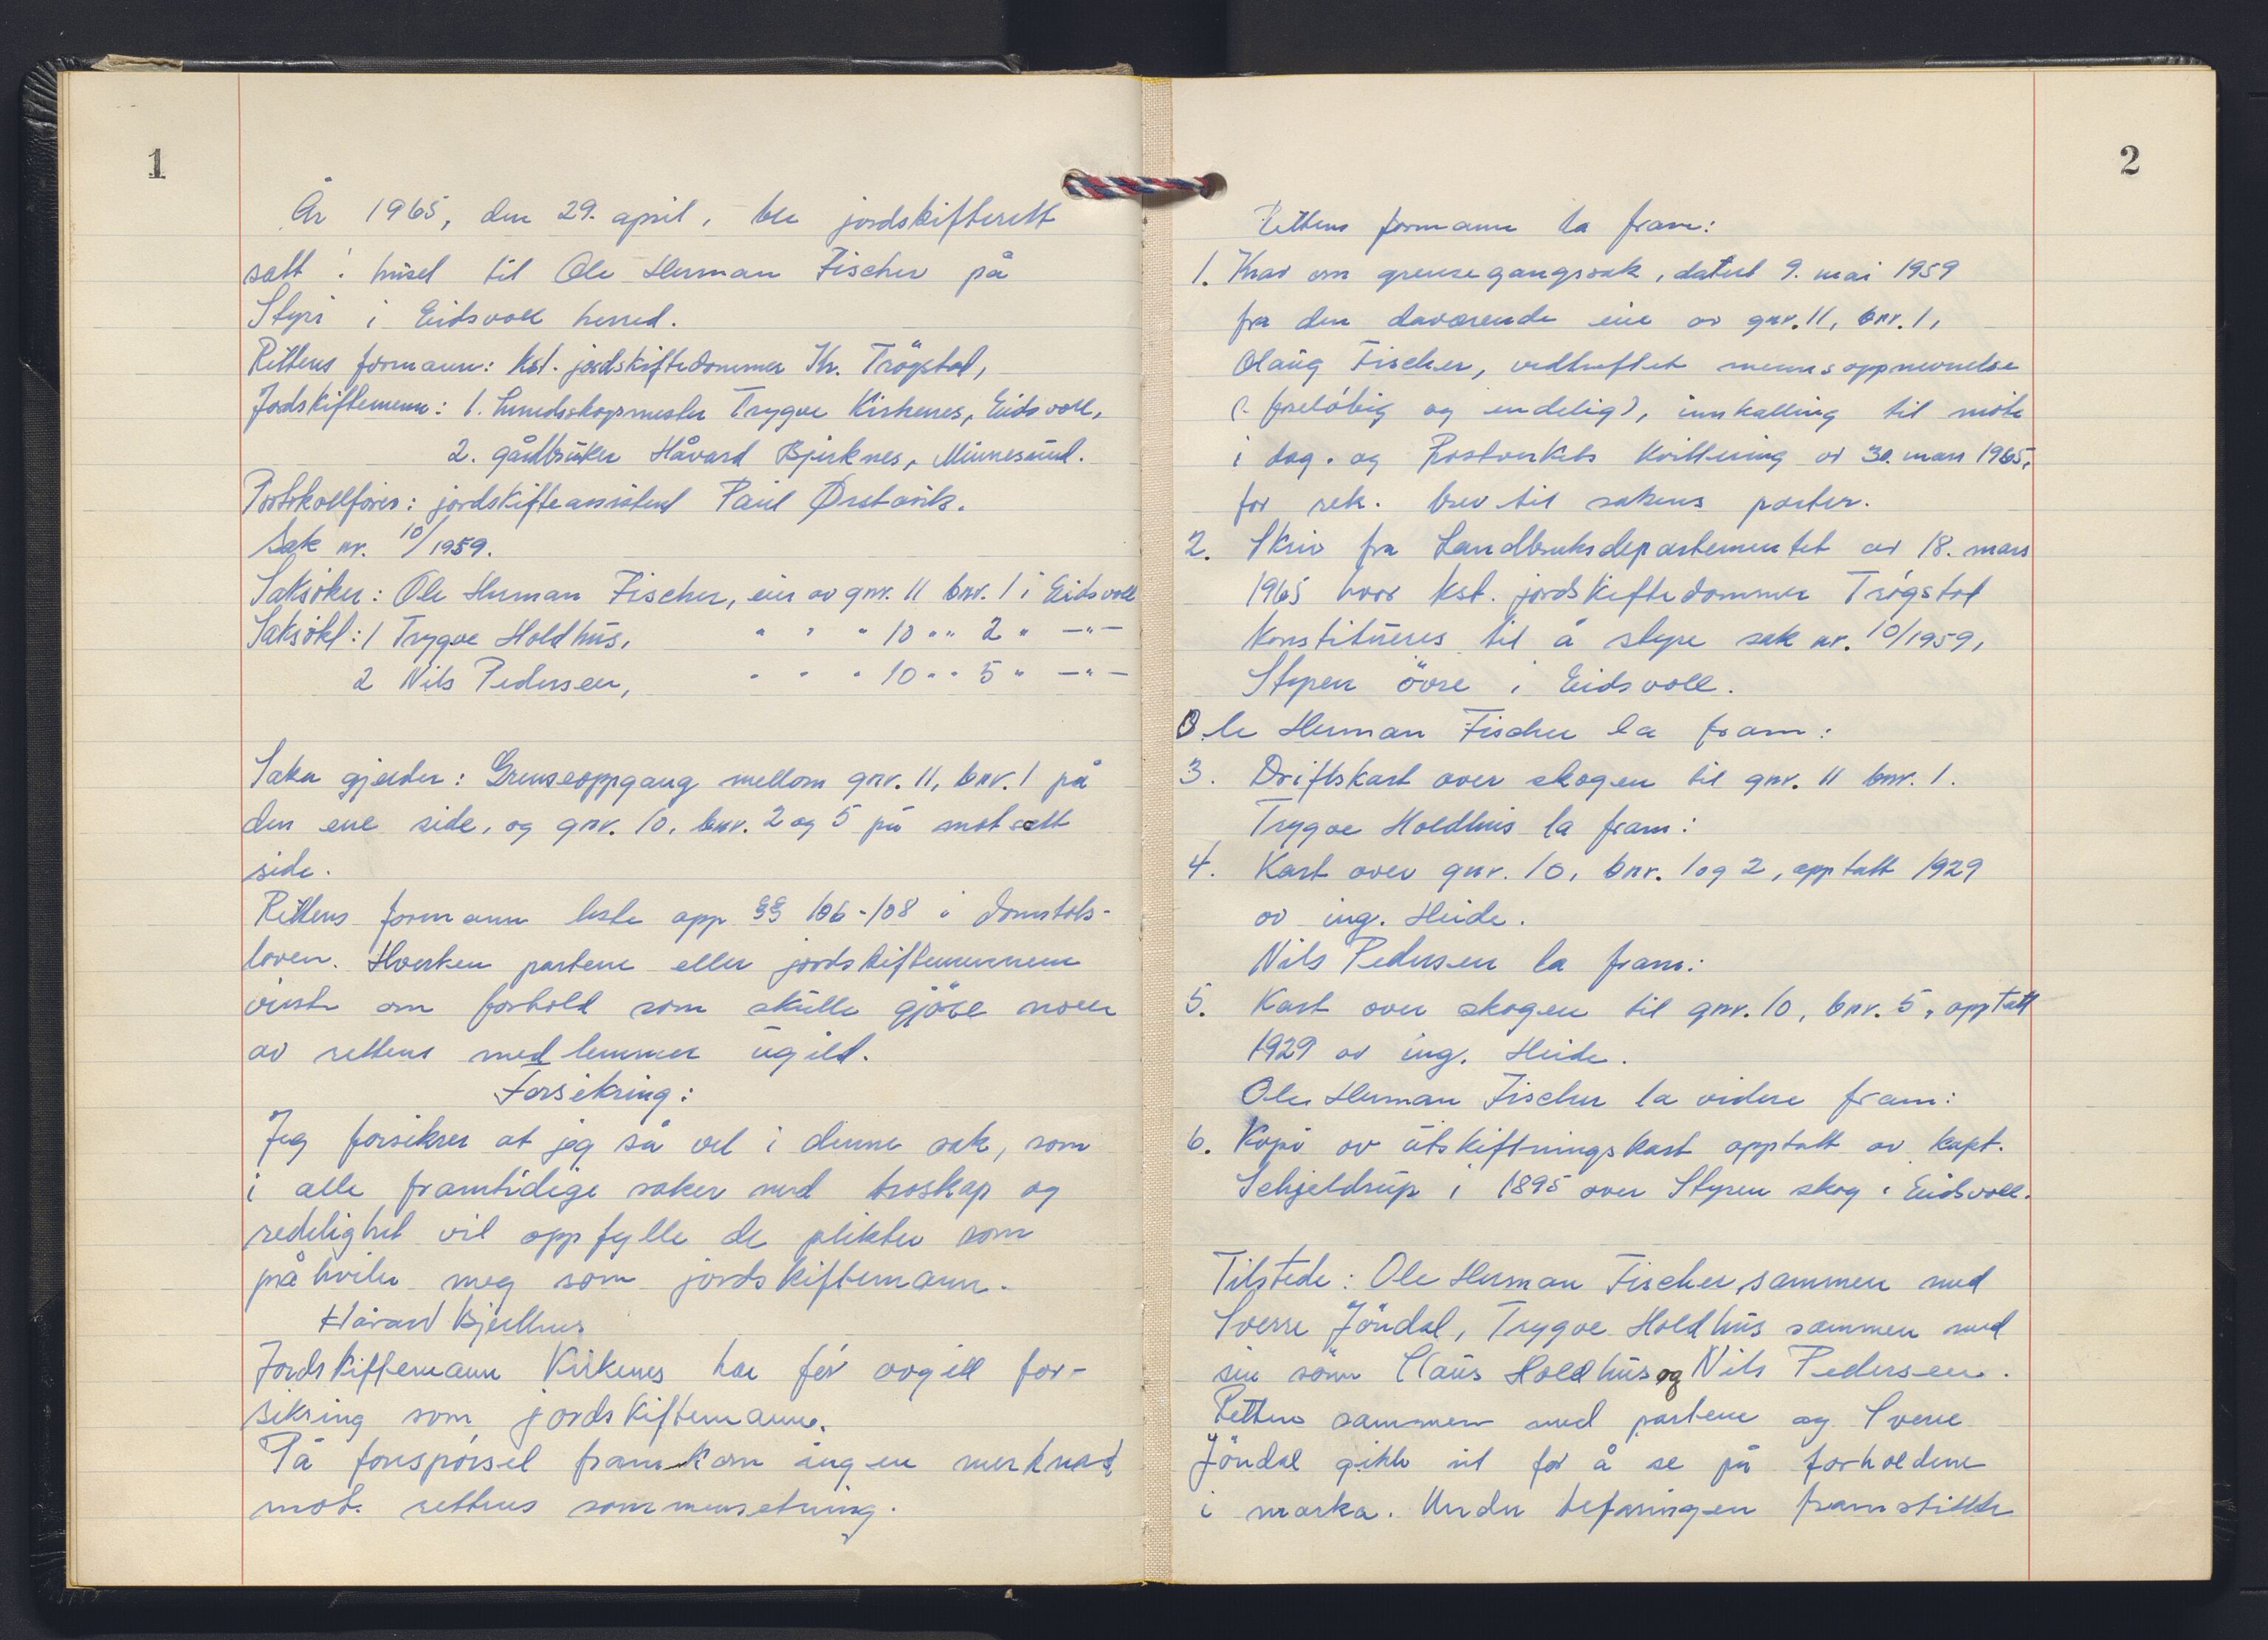 1
År 1965, den 29. april, ble jordskifterett
satt i huset til Ole Herman Fischer på
Styri i Eidsvoll herred.
Rettens formann: kst. jordskiftedommer Kr. Trögstad,
Jordskiftemenn: 1. herredsskogmester Trygve Kirkenes, Eidsvoll,
2. gårdbruker Håvard Bjerknes, Minnesund.
Protokollförer: jordskifteassistent Paul Ørstavik.
Sak nr. 10/1959.
Saksöker: Ole Herman Fischer, eier av gnr. 11 bnr. 1 i Eidsvoll
Saksökt: 1 Trygve Holdhus, " " " 10 " " 2 " —"—
2 Nils Pedersen, " " " 10 " " 5 " —"—
Saken gjelder: Grenseoppgang mellom gnr. 11, bnr. 1 på
den ene side, og gnr. 10, bnr. 2 og 5 på motsatt
side.
Rettens formann leste opp §§ 106-108 i domstols-
loven. Hverken partene eller jordskiftemennene
visste om forhold som skulle gjöre noen
av rettens medlemmer ugild.
Forsikring:
Jeg forsikrer at jeg så vel i denne sak, som
i alle framtidige saker med troskap og
redelighet vil oppfylle de plikter som
påhviler meg som jordskiftemann.
Håvard Bjerknes
Jordskiftemann Kirkenes har för avgitt for-
sikring som jordskiftemann.
På forespörsel framkom ingen merknad
mot rettens sammensetning.
2
Rettens formann la fram:
1. Krav om grensegangssak, datert 9. mai 1959
fra den daværende eier av gnr. 11, bnr. 1,
Olaug Fischer, vedheftet mennsoppnevnelse
(foreløbig og endelig), innkalling til møte
i dag. og Postverkets kvittering av 30. mars 1965,
for rek. brev til sakens parter.
2. Skriv fra Landbruksdepartementet av 18. mars
1965 hvor kst. jordskiftedommer Trögstad
konstitueres til å styre sak nr. 10/1959,
Styren övre i Eidsvoll.
Ole Herman Fischer la fram:
3. Driftskart over skogen til gnr. 11 bnr. 1.
Trygve Holdhus la fram:
4. Kart over gnr. 10, bnr. 1 og 2, opptatt 1929
av ing. Heide.
Nils Pedersen la fram:
5. Kart over skogen til gnr. 10, bnr. 5, opptatt
1929 av ing. Heide.
Ole Herman Fischer la videre fram:
6. Kopi av utskiftningskart opptatt av kapt.
Schjeldrup i 1895 over Styren skog i Eidsvoll.
Tilstede: Ole Herman Fischer sammen med
Sverre Jöndal, Trygve Holdhus sammen med
sin sönn Claus Holdhus og Nils Pedersen.
Retten sammen med partene og Sverre
Jöndal gikk ut for å se på forholdene
i marka. Under befaringen framstillte